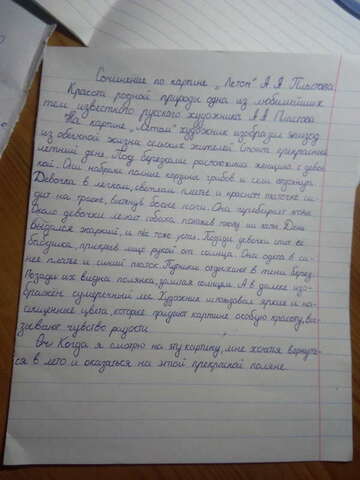 Сочинение по картине „Летом" А. А. Пластова
Красота родной природы одна из любимейших
тем известного русского художника А. А Пластова
На картине „Летом" художник изобразил эпизод
из обычной жизни сельских жителей Стоит прекрасный
летний день. Под березами расположилась женщина с девоч
кой. Они набрали полные корзины грибов и сели отдохнуть
Девочка в легком, светлом платье и красном платочке си-
дит на траве, вытянув босые ноги. Она перебирает
Около девочки лежит собака положив голову на лапы. День
выдался жаркий, и пёс тоже устал. Позади девочки спит её
бабушка, прикрыв лицо рукой от солнца. Она одета в си-
нее платье и синий платок. Путники отдыхают в тени берёз
Позади их видна полянка, залитая солнцем. А в далеке изо-
бражен сумрачный лес Художник использовал яркие и на-
сыщенные цвета, которые придают картине особую красоту, вы-
зывают чувство радости
Он Когда я смотрю на эту картину, мне хочется вернуть-
ся в лето и оказаться на этой прекрасной поляне